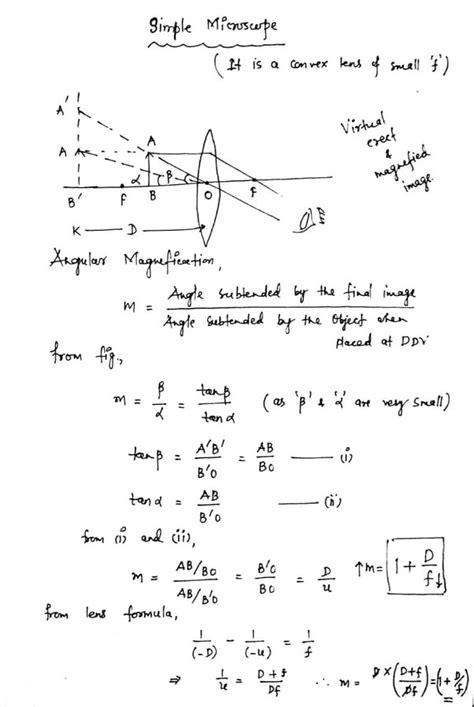 Simple Microscope
(It is a convex lens of small 'f')
A'
A
A
Virtual
erect
&
magnified
image.
B' F α B β O F
K — D
Angular Magnification,
m = Angle subtended by the final image
Angle subtended by the Object when
placed at DDV
from fig.,
m = β/α = tanβ/tanα (as 'β' & 'α' are very small)
tanβ = A'B'/B'O = AB/BO —— (i)
tanα = AB/B'O —— (ii)
from (i) and (ii),
m = AB/BO / AB/B'O = B'O/BO = D/u ↑m= 1 + D/f↓
from lens formula,
1/(-D) - 1/(-u) = 1/f
⇒ 1/u = D+f/Df ∴ m = D×(D+f/Df)=(1+D/f)